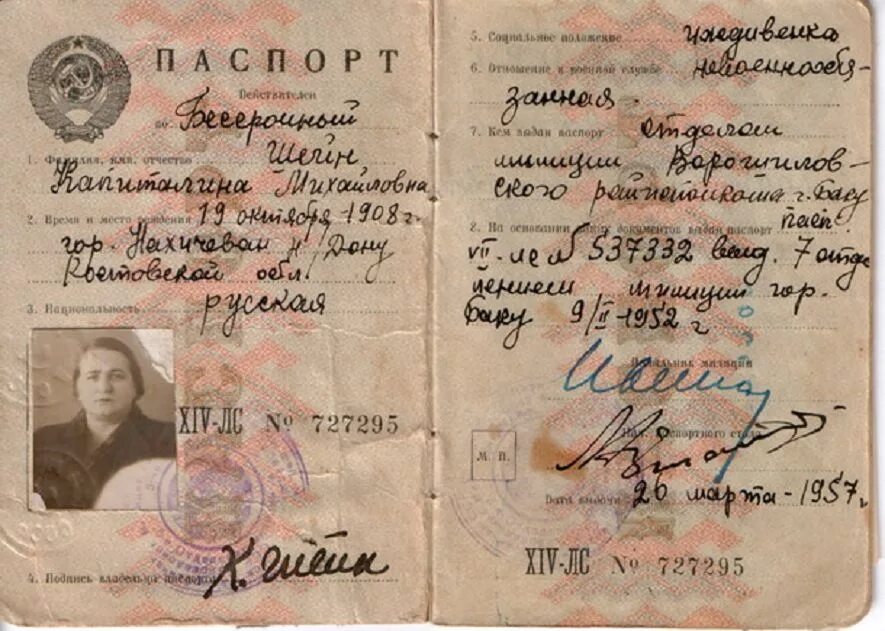 ПАСПОРТ
Действителен
по Бессрочный
1. Фамилия, имя, отчество Шейн
Капиталина Михайловна
2. Время и место рождения 19 октября 1908 г.
гор. Нахичеван н/Дону
Ростовской обл.
3. Национальность русская
XIV-ЛС № 727295
4. Подпись владельца паспорта К. Шейн
5. Социальное положение иждивенка
6. Отношение к военной службе невоеннообя-
занная.
7. Кем выдан паспорт отделом
милиции Ворошилов-
ского райисполкома г. Баку
8. На основании каких документов выдан паспорт пасп.
VII-ЛС № 537332 выд. 7 отде
лением милиции гор.
Баку 9/II-1952 г
Начальник милиции
Нач. паспортного стола
М. П.
Дата выдачи 26 марта-1957 г
XIV-ЛС № 727295